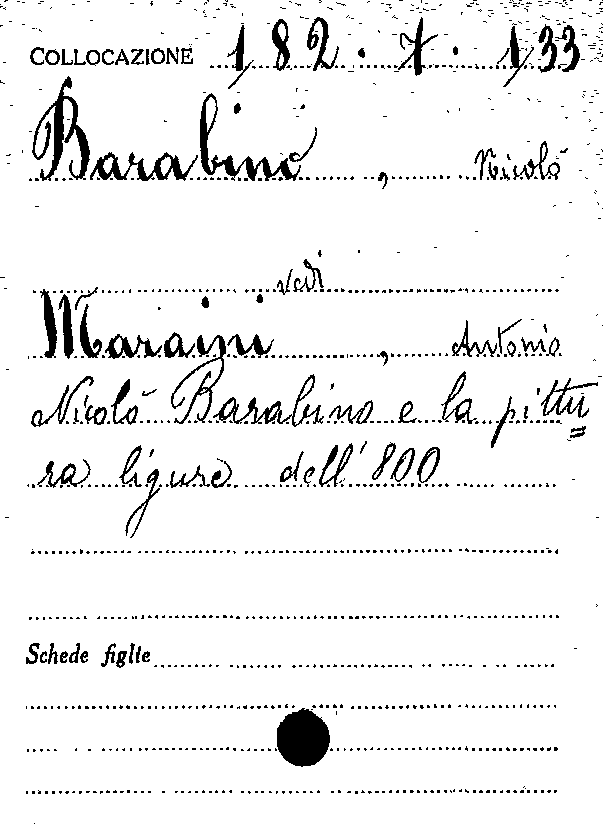 COLLOCAZIONE 182.7.133
Barabino, Nicolò
vedi
Maraini, Antonio
Nicolò Barabino e la pittu=
ra ligure dell'800
Schede figlie